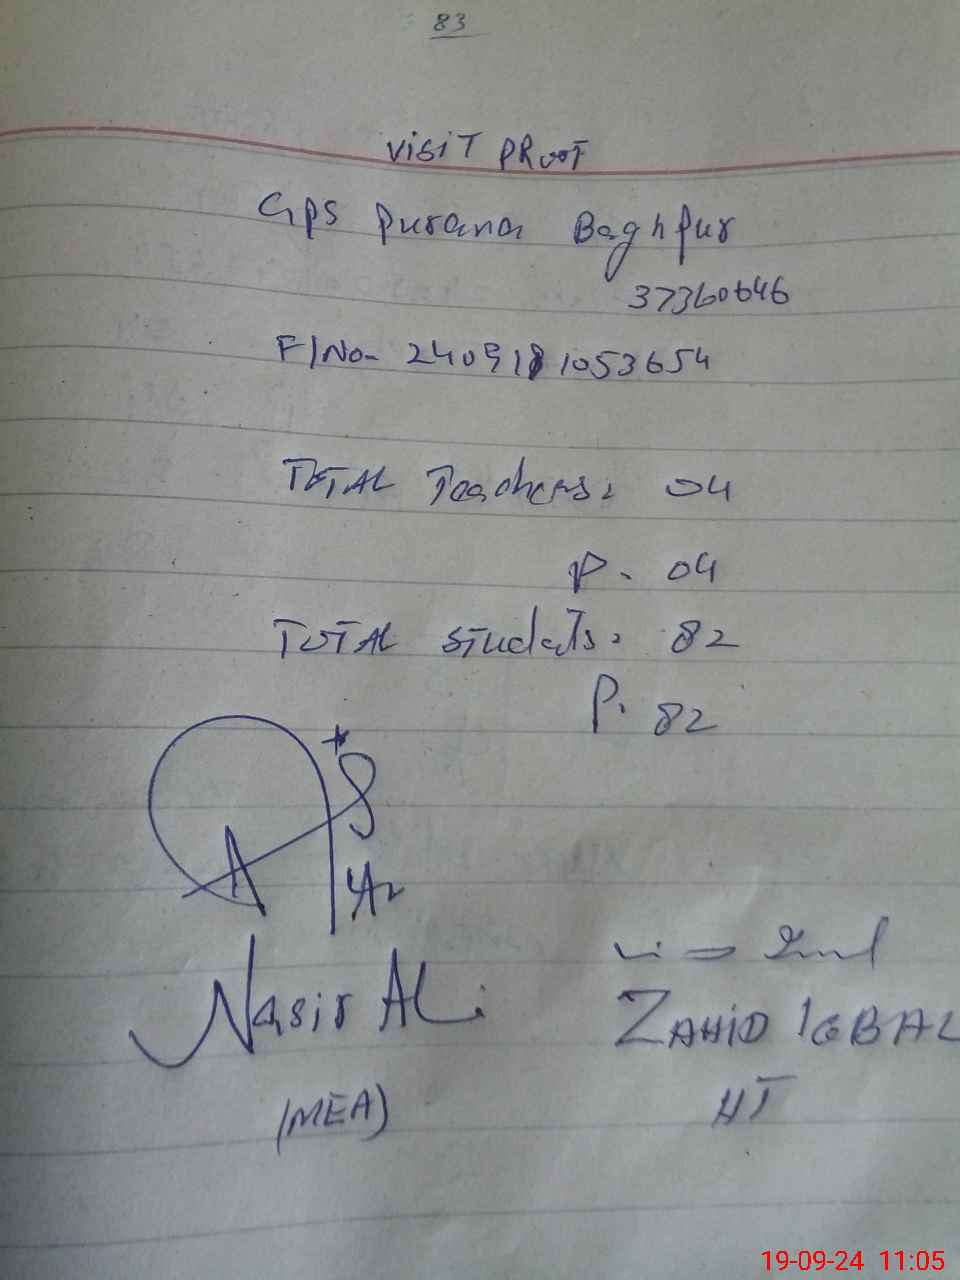 83
VISIT PROOF
GPS Purana Baghpur
37360646
F/No- 240918 1053654
TOTAL Teachers: 04
P. 04
TOTAL Students: 82
P. 82
Nasir Ali
ZAHID IQBAL
(MEA)
HT
19-09-24 11:05